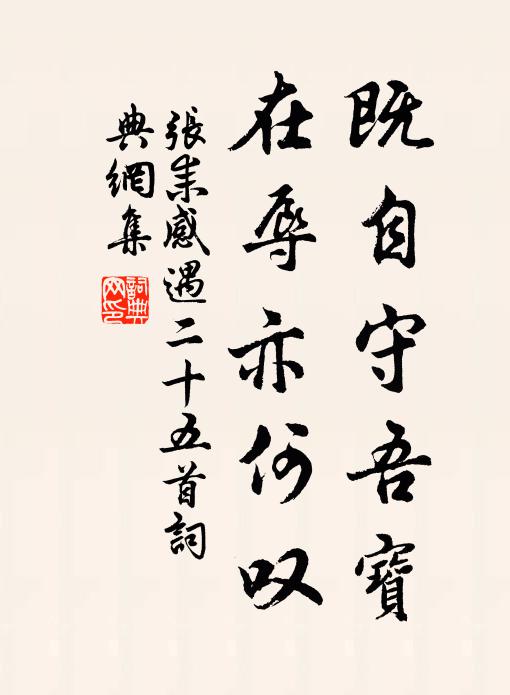 既自守吾寶
在辱亦何叹
張耒感遇二十五首詞
典網集
詞典
网印